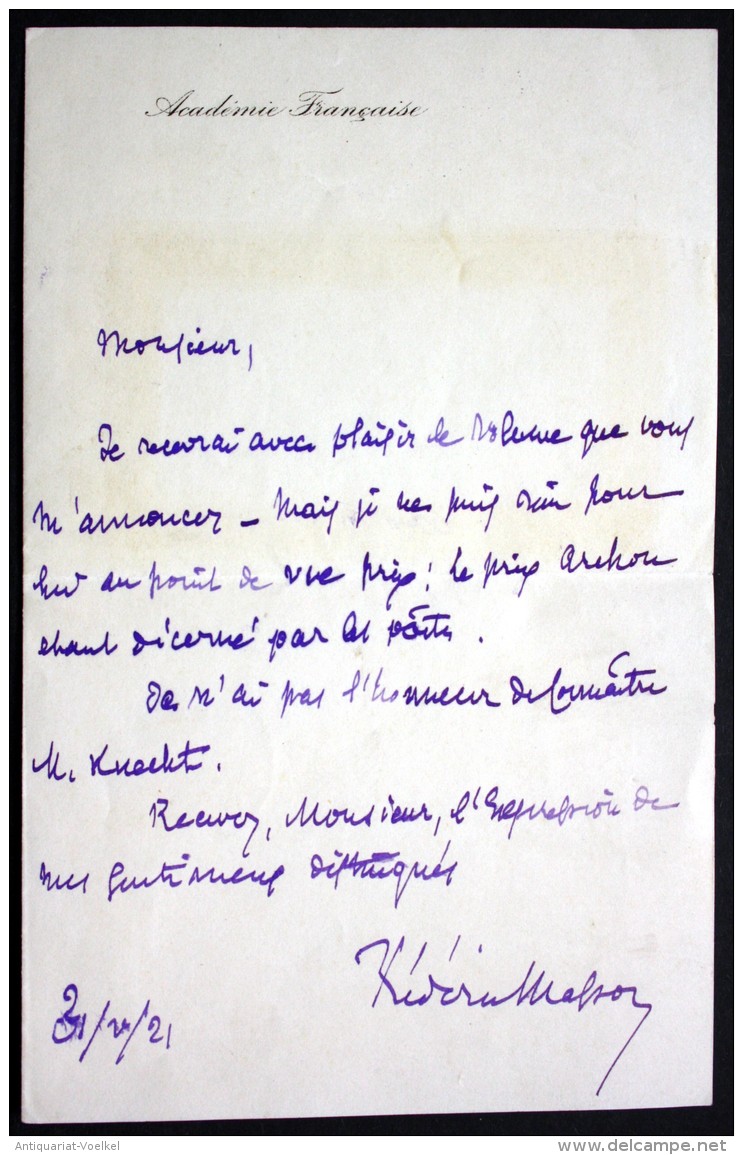 Académie Française
Monsieur,
Je recevrai avec plaisir le volume que vous
m'annoncez – Mais je ne puis rien pour
lui au point de vue prix : le prix Archon
étant décerné par les poètes.
Je n'ai pas l'honneur de connaître
M. Knecht.
Recevez, Monsieur, l'expression de
mes sentiments distingués
Frédéric Masson
31/ /21
Antiquariat-Voelkel
delcampe.net